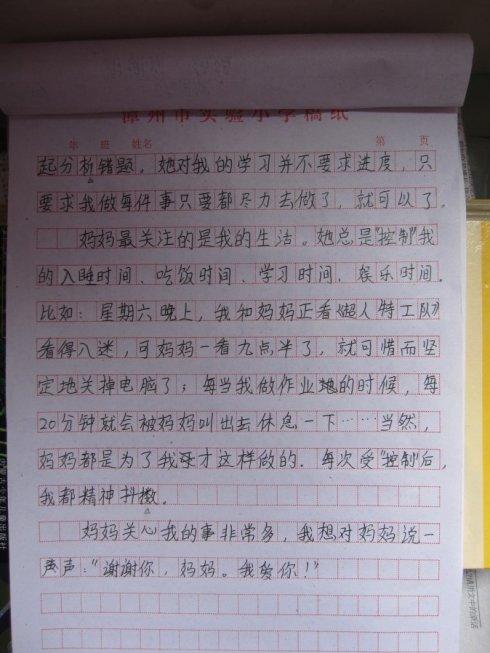 漳州市实验小学稿纸
年 班 姓名 第 页
起分析错题。她对我的学习并不要求进度，只
要求我做每件事只要都尽力去做了，就可以了。
妈妈最关注的是我的生活。她总是“控制”我
的入睡时间、吃饭时间、学习时间、娱乐时间。
比如：星期六晚上，我和妈妈正看《超人特工队》
看得入迷，可妈妈一看九点半了，就可惜而坚
定地关掉电脑了；每当我做作业地的时候，每
20分钟就会被妈妈叫出去休息一下……当然，
妈妈都是为了我好才这样做的．每次受“控制”后，
我都精神抖擞。
妈妈关心我的事非常多，我想对妈妈说一
声声：“谢谢你，妈妈。我爱你！”